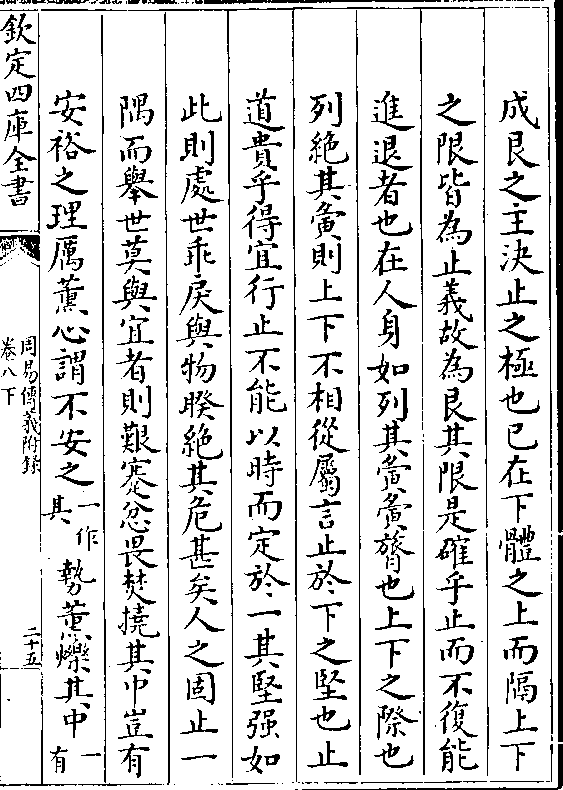 成艮之主決止之極也已在下體之上而隔上下
之限皆為止義故為艮其限是確乎止而不復能
進退者也在人身如列其夤夤膂也上下之際也
列絶其夤則上下不相從屬言止於下之堅也止
道貴乎得宜行止不能以時而定於一其堅强如
此則處世乖戾與物睽絶其危甚矣人之固止一
隅而舉世莫與宜者則艱蹇忿畏焚撓其中豈有
安裕之理厲薰心謂不安之一作其勢薰爍其中一有
欽定四庫全書
周易傳義附錄
卷八下
二十五